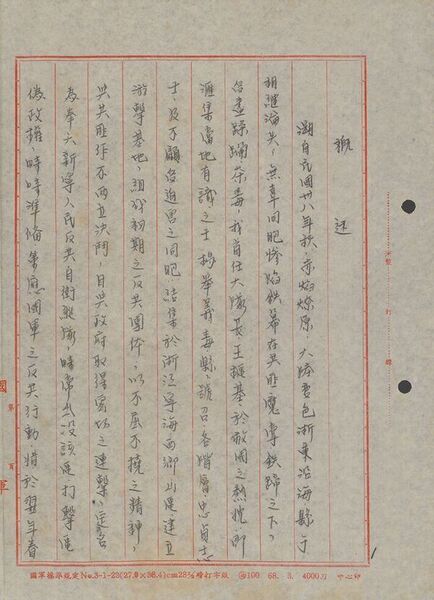 概述
溯自民國卅八年秋,赤焰燎原,大陸變色浙東沿海縣市
相繼淪失,無辜同胞慘陷鉄幕在共匪魔掌鉄蹄之下,
盡蹂躪荼毒,我首任大隊長王挺基,於敵國之熱忱,即
滙集當地有識之士揭舉義,號召各階層忠貞志
士,及不願受迫害之同胞,結集於浙江寧海西鄉山區建立
游擊基地,組成初期之反共團体,以不屈不撓之精神,
與共匪作不兩立決鬥,且與政府取得密切之連繫,定名
為奉天新寧人民反共自衛縱隊,時常出沒該區打擊匪
偽政權,時時準備策應國軍之反共行動惜於翌年春
裝訂線
國軍
第 頁
國軍檔案規定No.3-1-23(27.0×38.4)cm28磅打字紙 100 68. 3. 4000刀 中心印
1